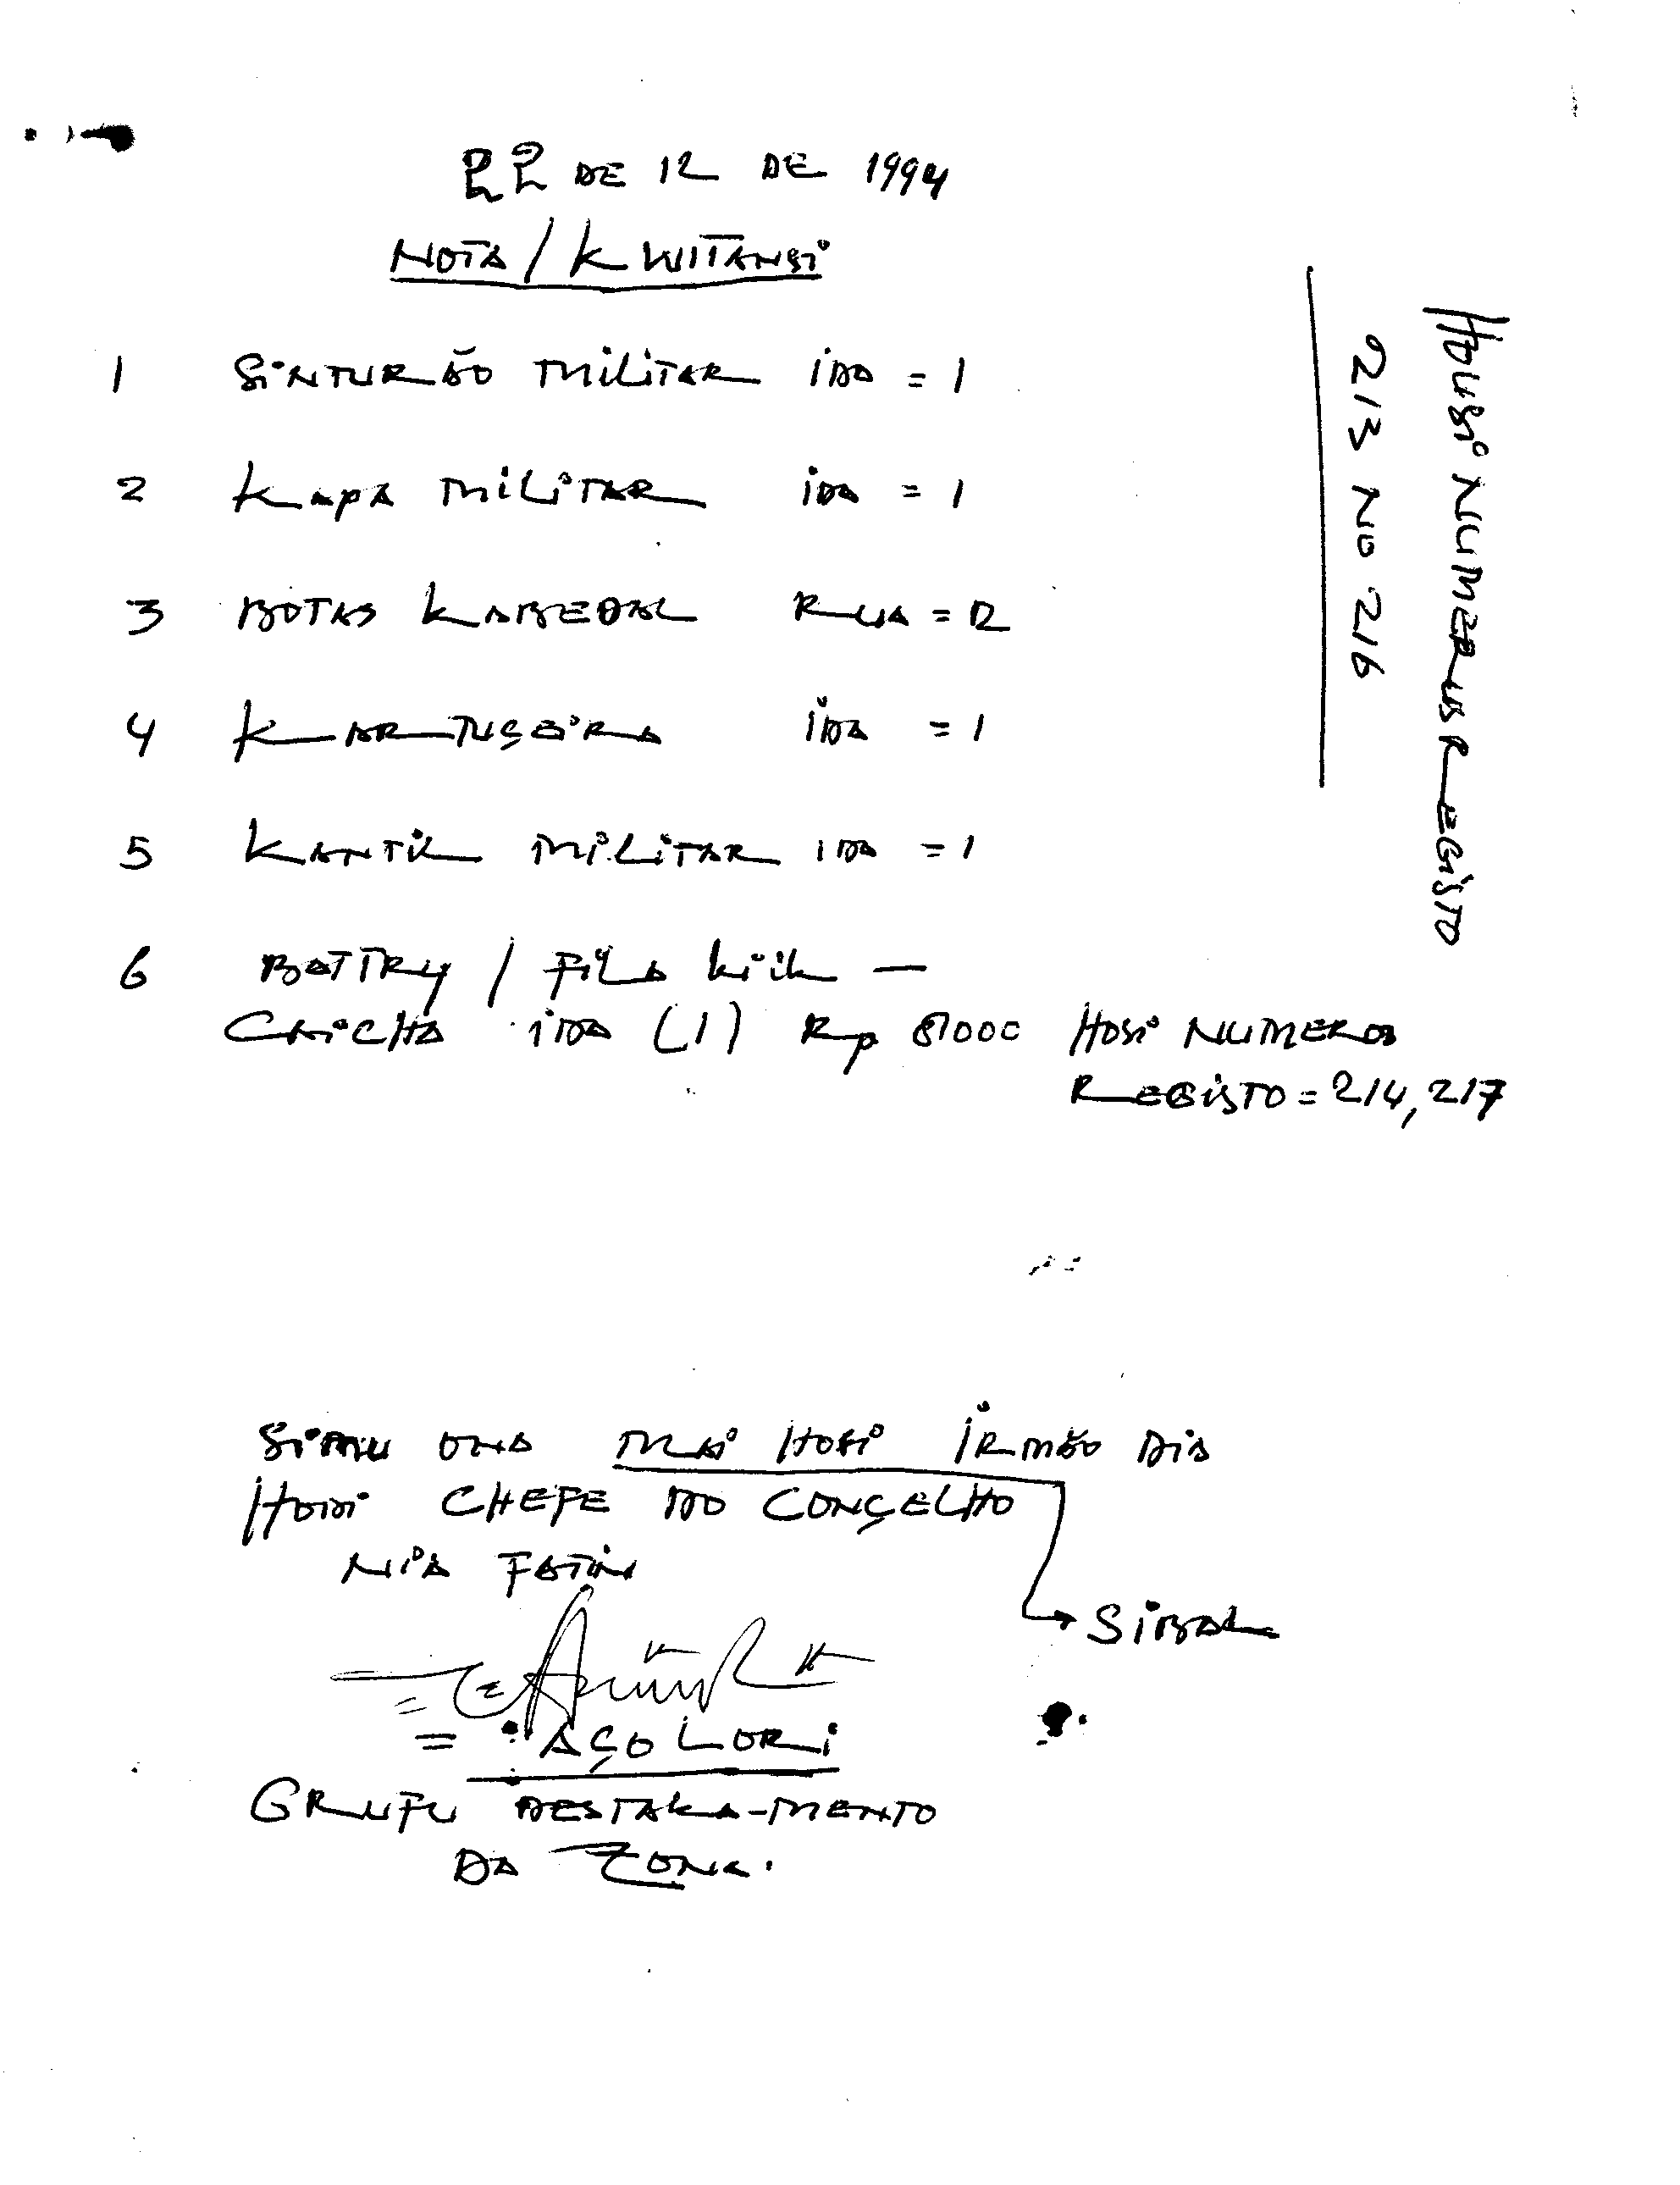 22 DE 12 DE 1994
NOTA / KWITANSI
1 SINTURÃO MILITAR IDA = 1
2 KAPA MILITAR IDA = 1
3 BOTAS KABEDAL RUA = 2
4 KARTUÇEIRA IDA = 1
5 KANTIL MILITAR IDA = 1
6 BATTRY / PILA KIIK —
CAICHA IDA (1) Rp 81000 HOSI NUMEROS
REGISTO = 214, 217
HOUSI NUMERUS REGISTO
213 NO 216
SIMU ONA MAI HOSI IRMÃO DIA
HODI CHEFE DO CONÇELHO
NIA FATIN
SIBAL
= AÇO LORI
GRUPU DESTAKA-MENTO
DA ZONA.